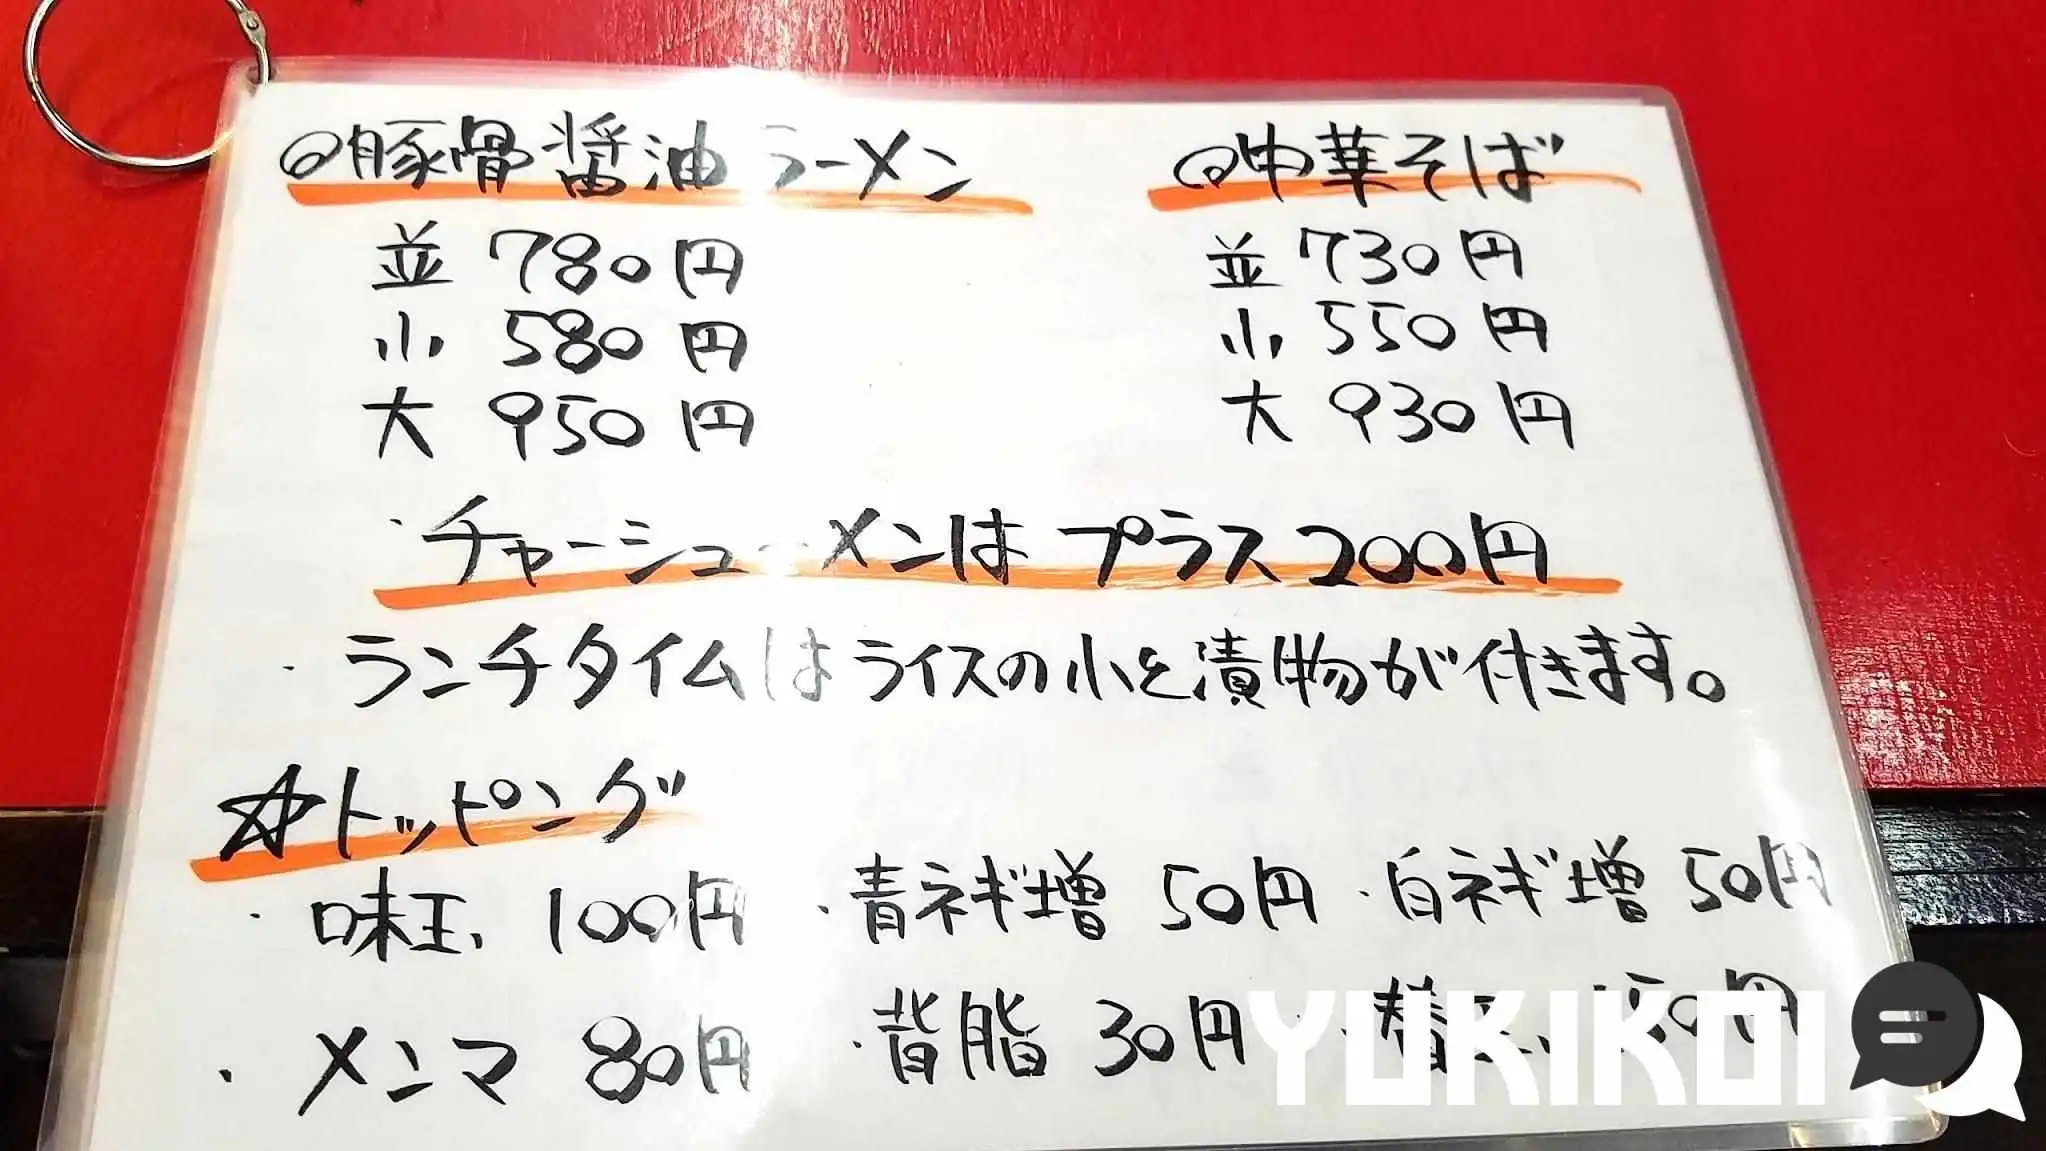 ◎豚骨醤油ラーメン
並 780円
小 580円
大 950円
◎中華そば
並 730円
小 550円
大 930円
・チャーシューメンはプラス200円
・ランチタイムはライスの小と漬物が付きます。
☆トッピング
・味玉 100円 ・青ネギ増 50円 ・白ネギ増 50円
・メンマ 80円 ・背脂 30円 ・替玉 150円
YUKIKOI